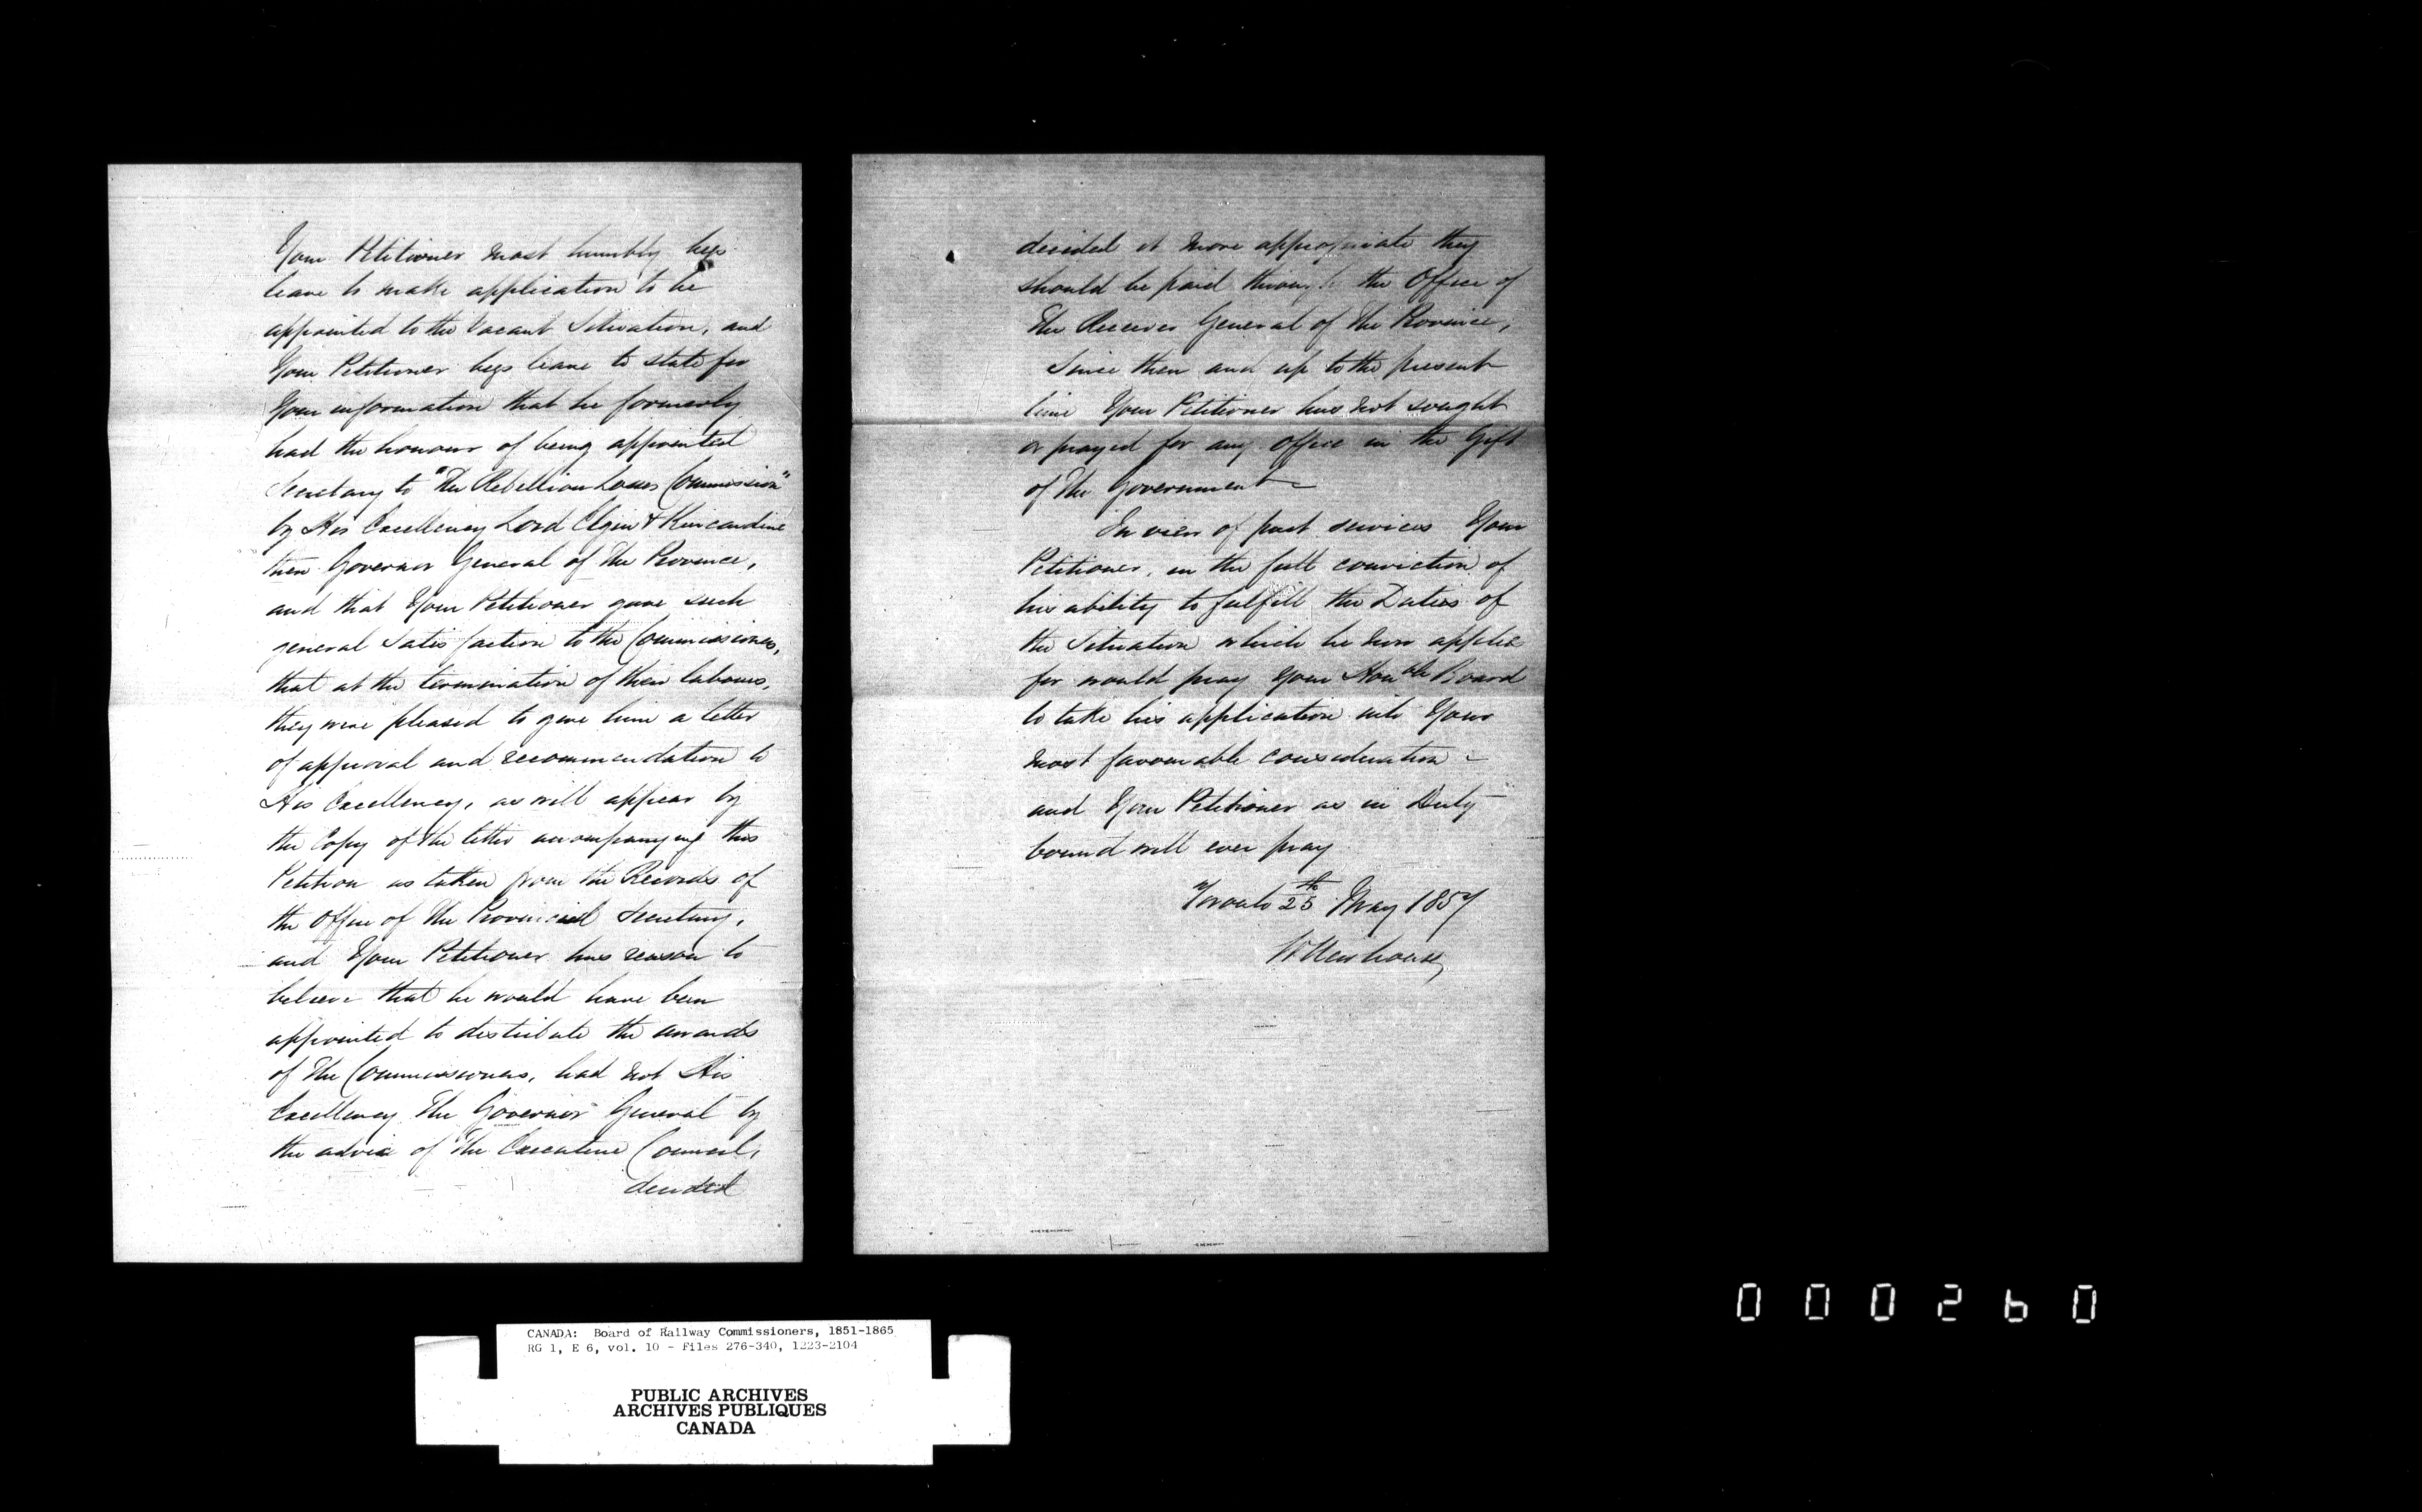 Your Petitioner most humbly begs
leave to make application to be
appointed to the Vacant Situation, and
Your Petitioner begs leave to state for
Your information that he formerly
had the honour of being appointed
Secretary to "The Rebellion Losses Commission"
by His Excellency Lord Elgin & Kincardine
then Governor General of the Province,
and that Your Petitioner gave such
general Satisfaction to the Commissioners,
that at the termination of their labours,
they were pleased to give him a letter
of approval and recommendation to
His Excellency, as will appear by
the Copy of the letter accompanying this
Petition as taken from the Records of
the Office of the Provincial Secretary,
and Your Petitioner has reason to
believe that he would have been
appointed to distribute the awards
of the Commissioners, had not His
Excellency The Governor General by
the advice of the Executive Council,
decided
decided it more appropriate they
should be paid through the Office of
The Receiver General of the Province,
Since then and up to the present
time Your Petitioner has not sought
or prayed for any Office in the Gift
of the Government
In view of past services Your
Petitioner, in the full conviction of
his ability to fulfill the Duties of
the Situation which he now applies
for would pray Your Honble Board
to take his application into Your
most favourable consideration
and Your Petitioner as in Duty
bound will ever pray
Toronto 25th May 1857
W Newhouse
000260
CANADA: Board of Railway Commissioners, 1851-1865
RG 1, E 6, vol. 10 - Files 276-340, 1223-2104
PUBLIC ARCHIVES
ARCHIVES PUBLIQUES
CANADA